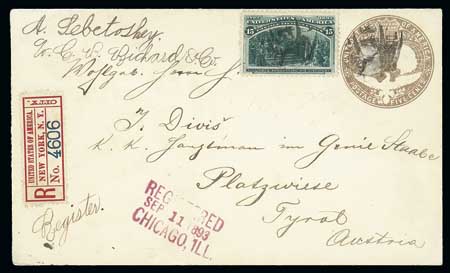 15 UNITED STATES OF AMERICA 15
UNITED STATES OF AMERICA
POSTAGE FIVE CENTS
A. Lebetoshey
C. B. Richard & Co.
UNITED STATES OF AMERICA.
NEW YORK, N.Y.
R No. 4606
Register.
T. Diviš
k. k. Hauptman im Genie Stabe
Platzwiese
Tyrol
Austria
REGISTERED
SEP 11 1893
CHICAGO, ILL.